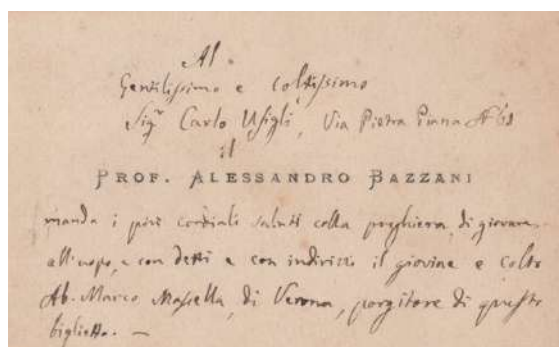 Al
Gentilissimo e coltissimo
Sigr Carlo Usigli, Via Pietra Piana
il
PROF. ALESSANDRO BAZZANI
manda i più cordiali saluti colla preghiera, di giovare,
all'uopo, e con detti e con indirizzo il giovine e colto
Ab. Marco Massella, di Verona, porgitore di questo
biglietto. —